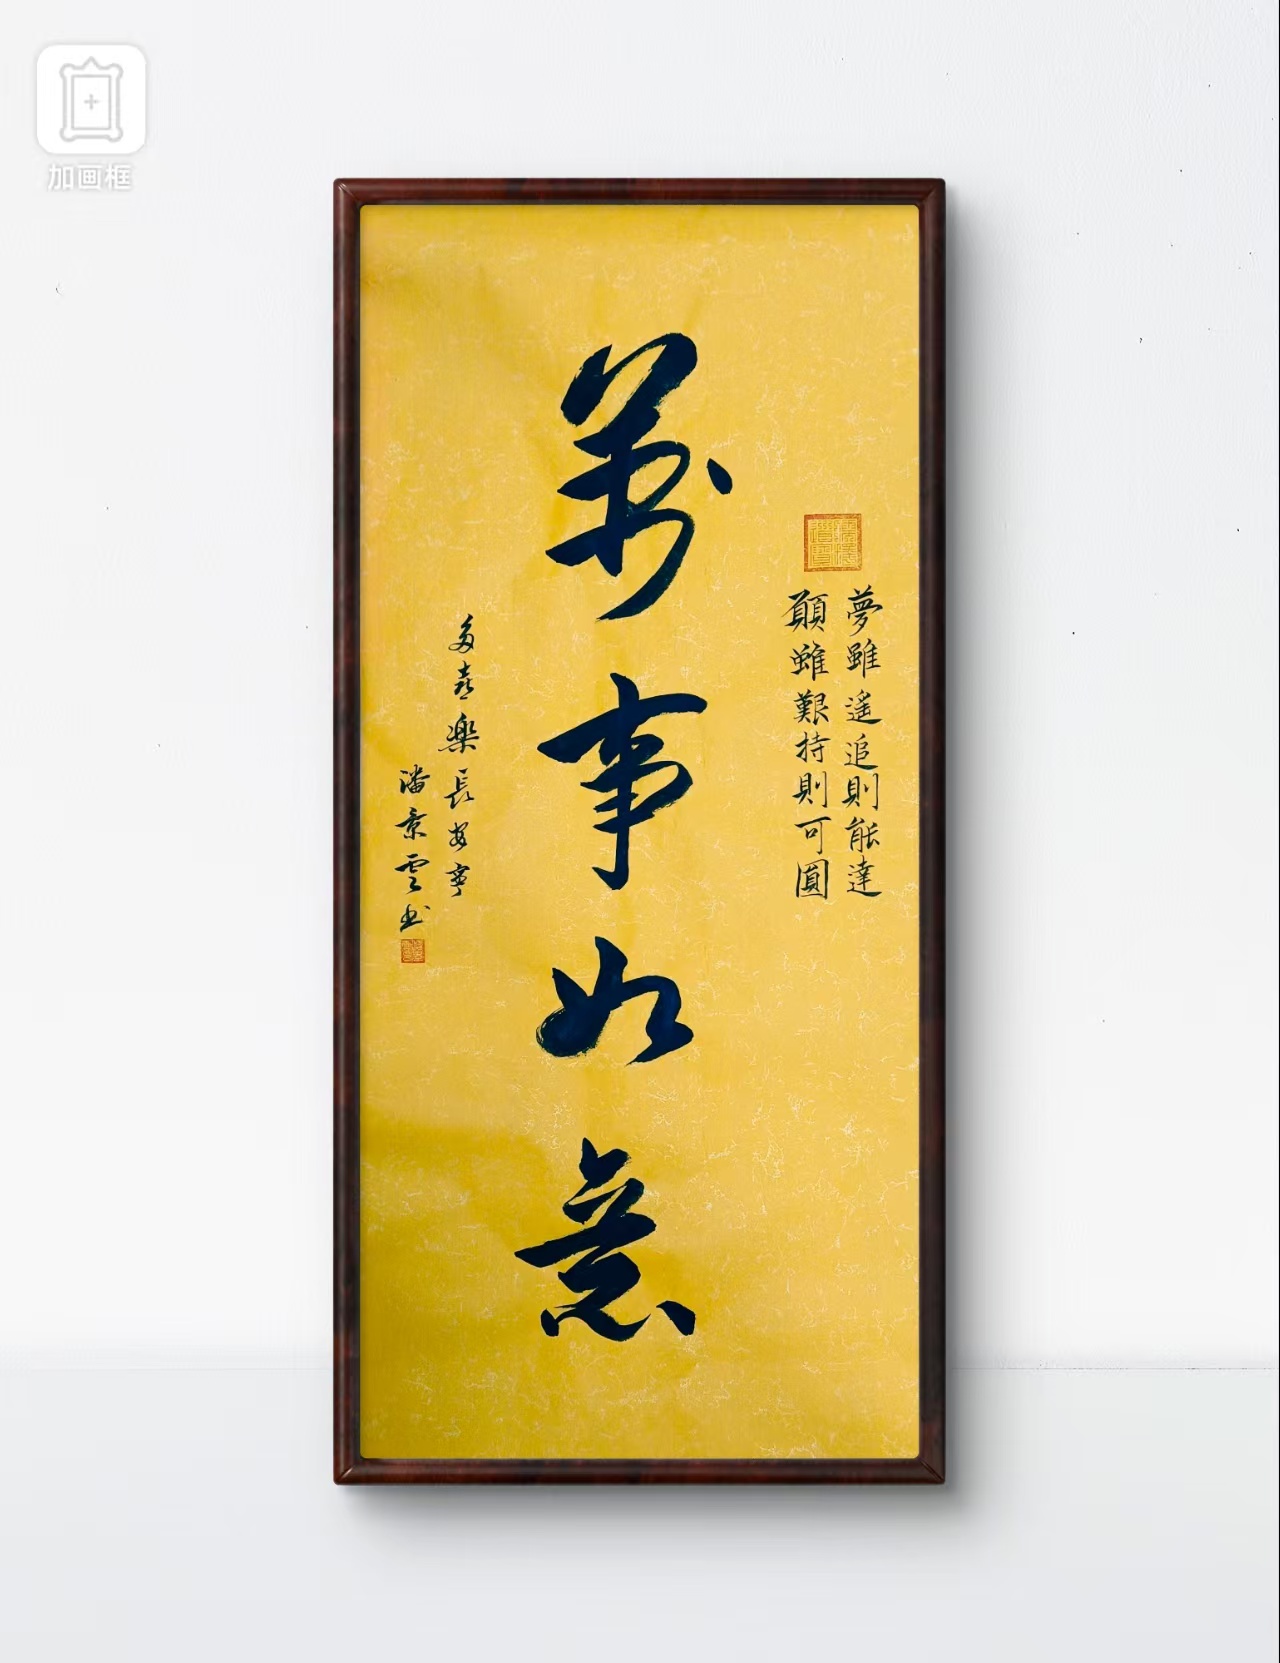 加画框
夢雖遥追則能達
願雖艱持則可圓
萬事如意
多喜樂長安寧
潘景雲书